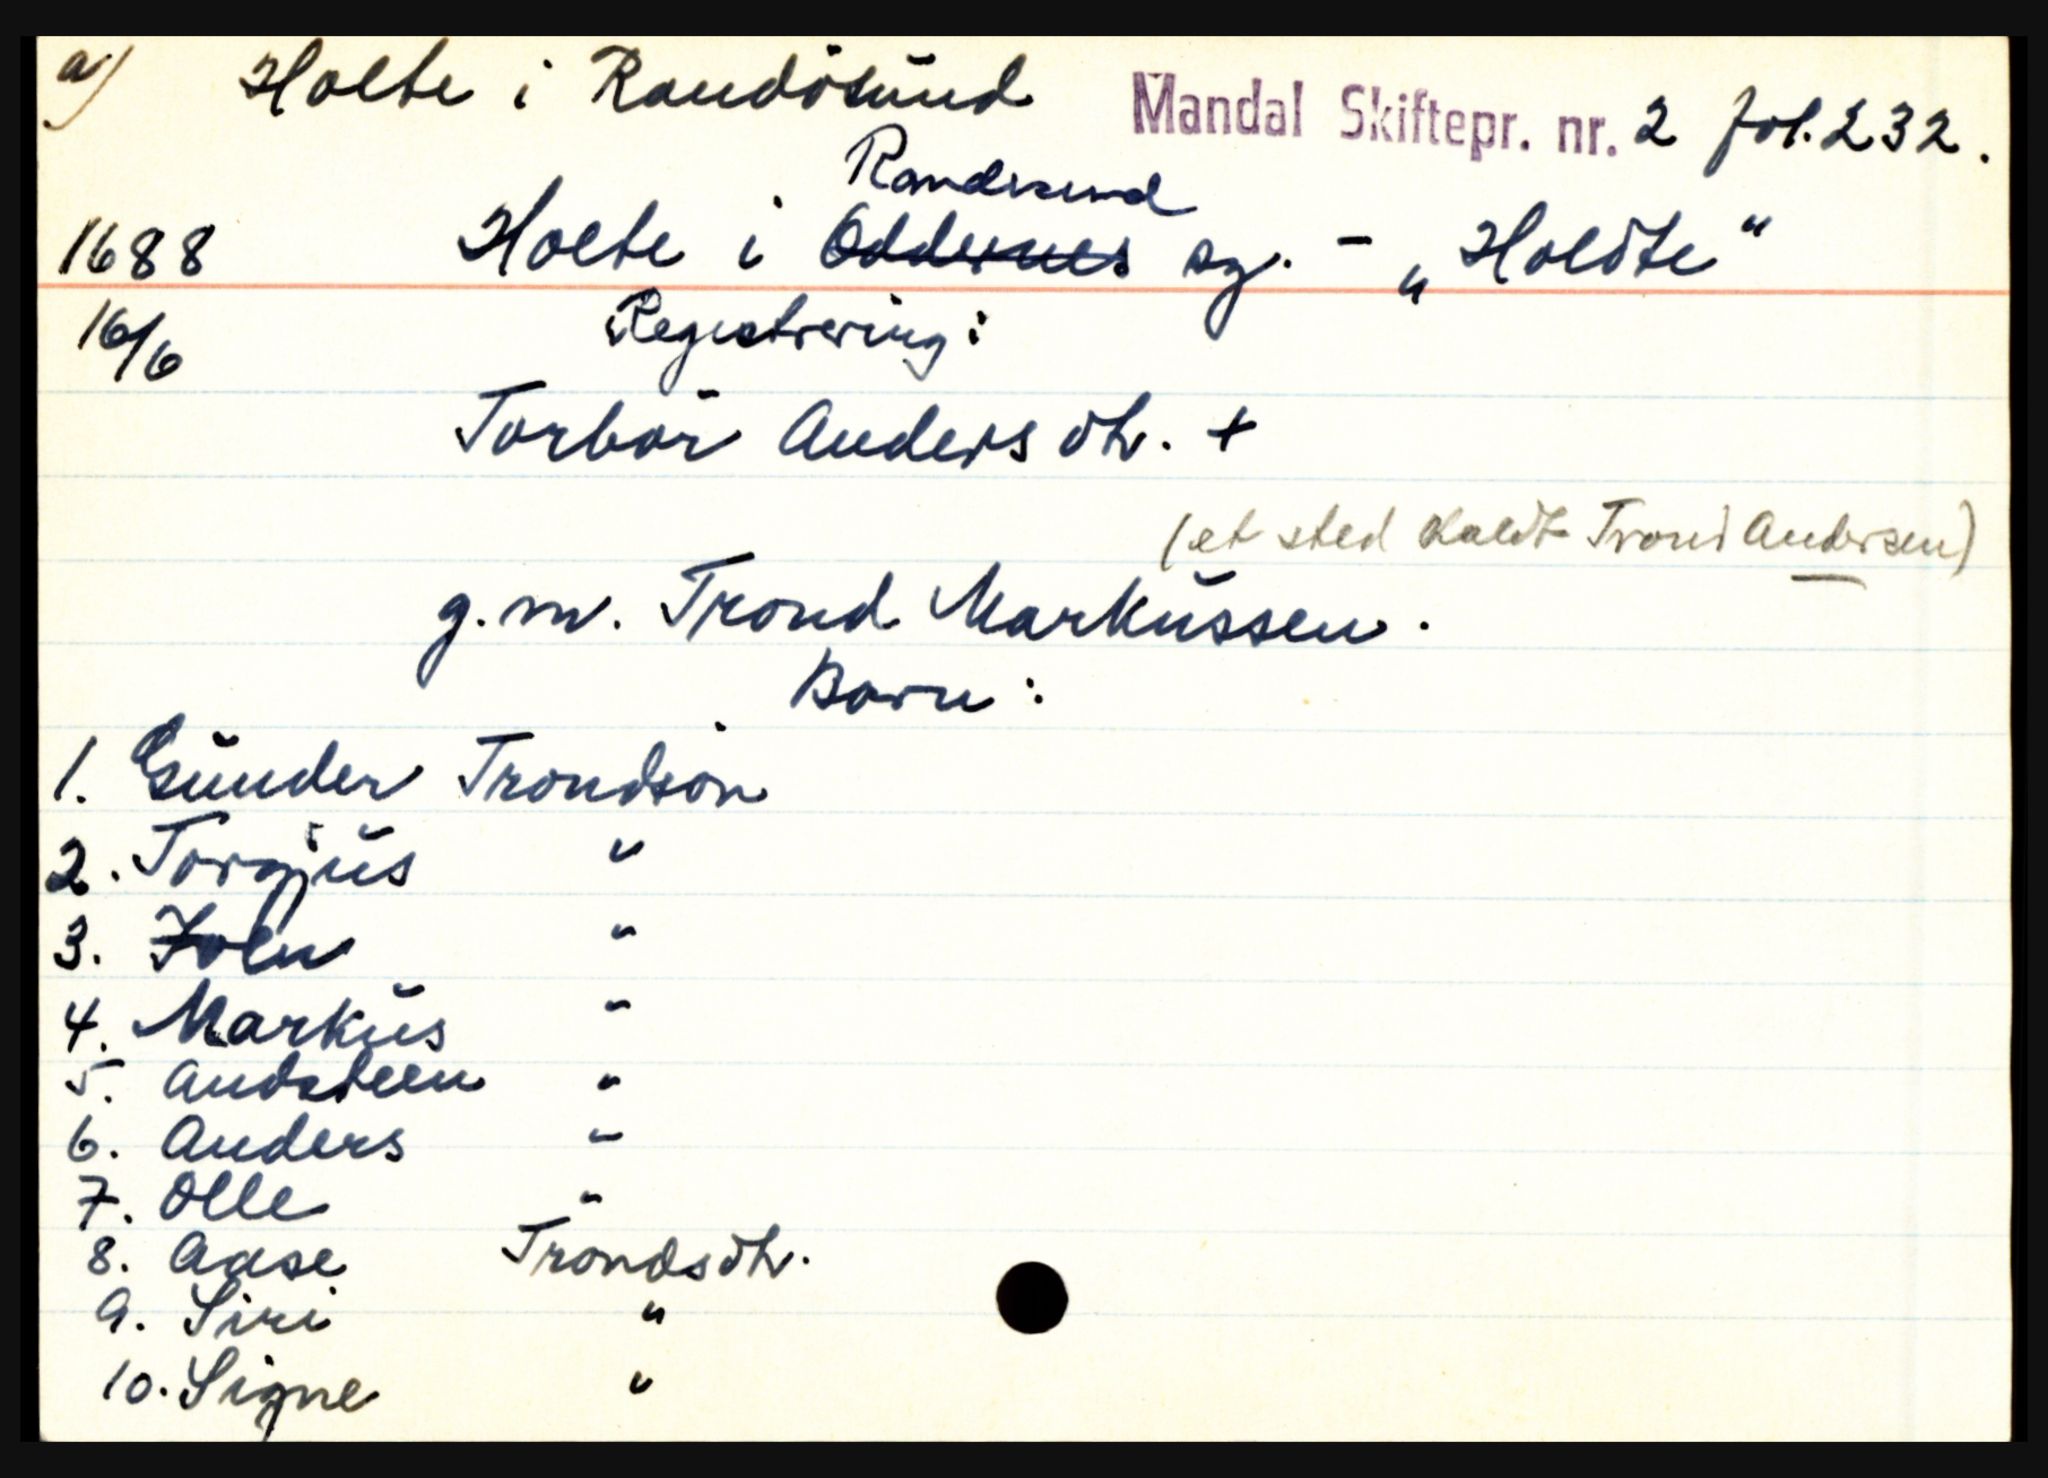 a) Holte i Randösund Mandal Skiftepr. nr. 2 fol. 232.
Randesund
1688 Holte i Oddernes sg. - „Holdte"
16/6 Registrering:
Torbor Andersdtr. +
(et sted kaldt Trond Andersen)
g. m. Trond Markussen.
Barn:
1. Gunder Trondsön
2. Torgjus "
3. "
4. Markus "
5. Andsteen "
6. Anders "
7. Olle "
8. Aase Trondsdtr.
9. Siri "
10. Signe "